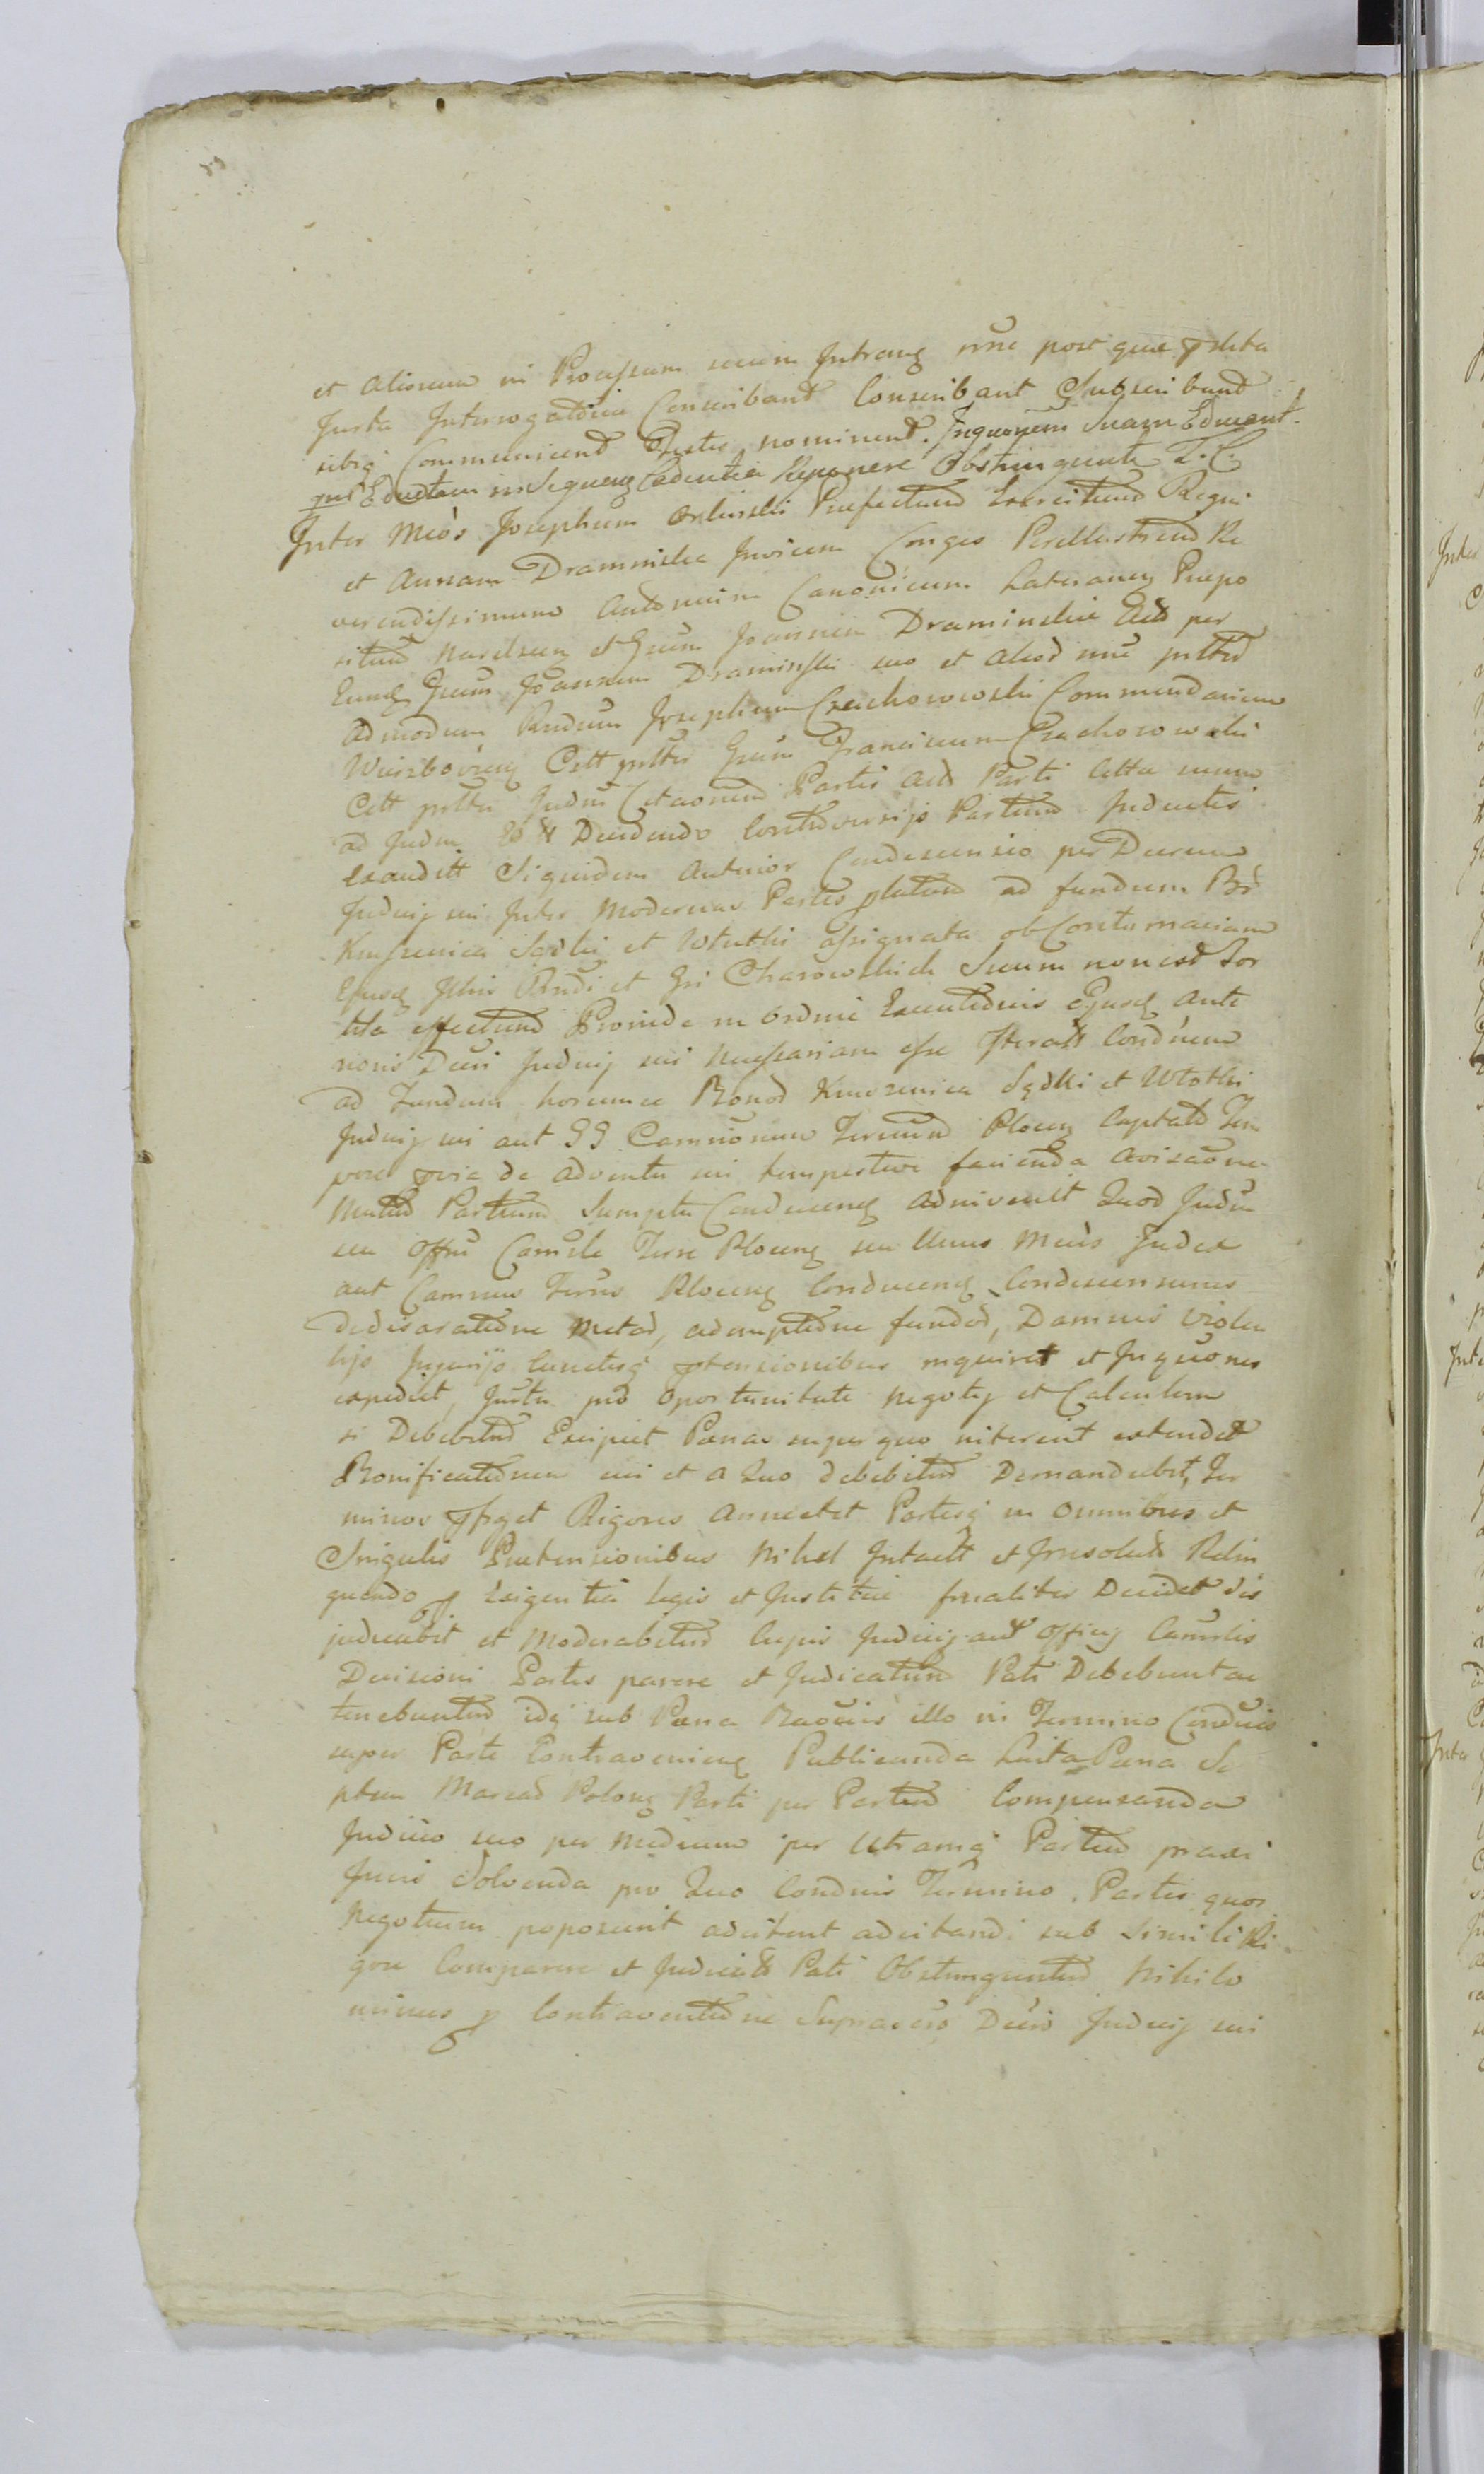 et Aliorum in Processum secum Intrang nunc post quae ptita
Juxta Interrogatoria Conscribant Conscribant Subscribant
sibiq Communicent Testes nominent. Inquonem Suam Educant.
qm Eductam in Sequeng Cadentia Reponere Obstringuntr T. C.
Inter Mcos Josephum Orlinski Praefectum Exercituum Regni
et Annam Draminska Invicem Conges Perillustrem Re
verendissimum Antonium Canonicum Lateraneng Prepo
situm et Gsum Joannem Draminskie Act per
Eumq Gsum Joannem Draminski suo et aliod nne pttrum
Admodum Rndum Josephum Czachorowski Commendarium
Citt pttes Gsum Franciscum Czachorowski
Citt pttes Judm Citaonem Partis Act Parti Cittae
ad Judm Decidendo Controversijs Partium Inductis
exauditt Siquidem Anterior Condescensio per Decretum
Judicij sui Inter Modernas Partes platum ad fundum Br
Kuszenica Sędki et Wtothi assignata ob Contumaciam
Ejusq Itius Rndi et Gsi Charowskich Suum non est Sor
tita effectum Proinde in Ordine Executionis Ejusq Ante
rioris Dcri Judicij sui necessariam esse Iteratt Condnem
ad Fundum horumce Bonod Sędki et Wtothi
Judicij sui aut GG Camrionum Terrum Ploceng Captatt Tem
pore pvia de adventu sui tempestive facienda avisatione
Mutuo Partium Sumptu Conducenq adinvenit Quod Judm
seu Offm Camsle Terre Ploceng seu Unus Mcus Judex
aut Camrius Terrus Ploceng Conduceng Condescensurus
Metad, ademptione fundod, Damnis Violen
tijs Injurijs Cunctisq ptensionibus inquiret et Inquones
expediet, Juxta pro oportunitate negotij et Calculum
si Debebitur Excipiet Poenas super quo niterent extendet
Bonificationem cui et a Quo debebitur Demandabit, Ter
minos pfiget Rigores Annectet Partesq in Omnibus et
Singulis Praetensionibus Nihil Intactt et Irresolutt Relin
quendo p Exigentia Legis et Justitiae finaliter Decidet dis
judicabit et Moderabitur Cujus Judicij aut Officij Camrlis
Decisioni Partes parere et Judicatum Pati Debebunt ac
tenebuntur idq sub Poena Baoniis illo in Termino Condnis
super Parte Contravenieng Publicanda Luita Poena Se
ptem Marcad Polong Parti per Partem Compensanda
Judicio suo per Medium per Utramq Partem praxi
Juris Solvenda pro Quo Condnis Termino. Partes quos
Negotium poposcerit adcitent adcitandi sub Simili Ri
gore Comparere et Judicatt Pati Obstringuntur Nihilo
minus p Contraventione Supraeiis Dcris Judicij sui